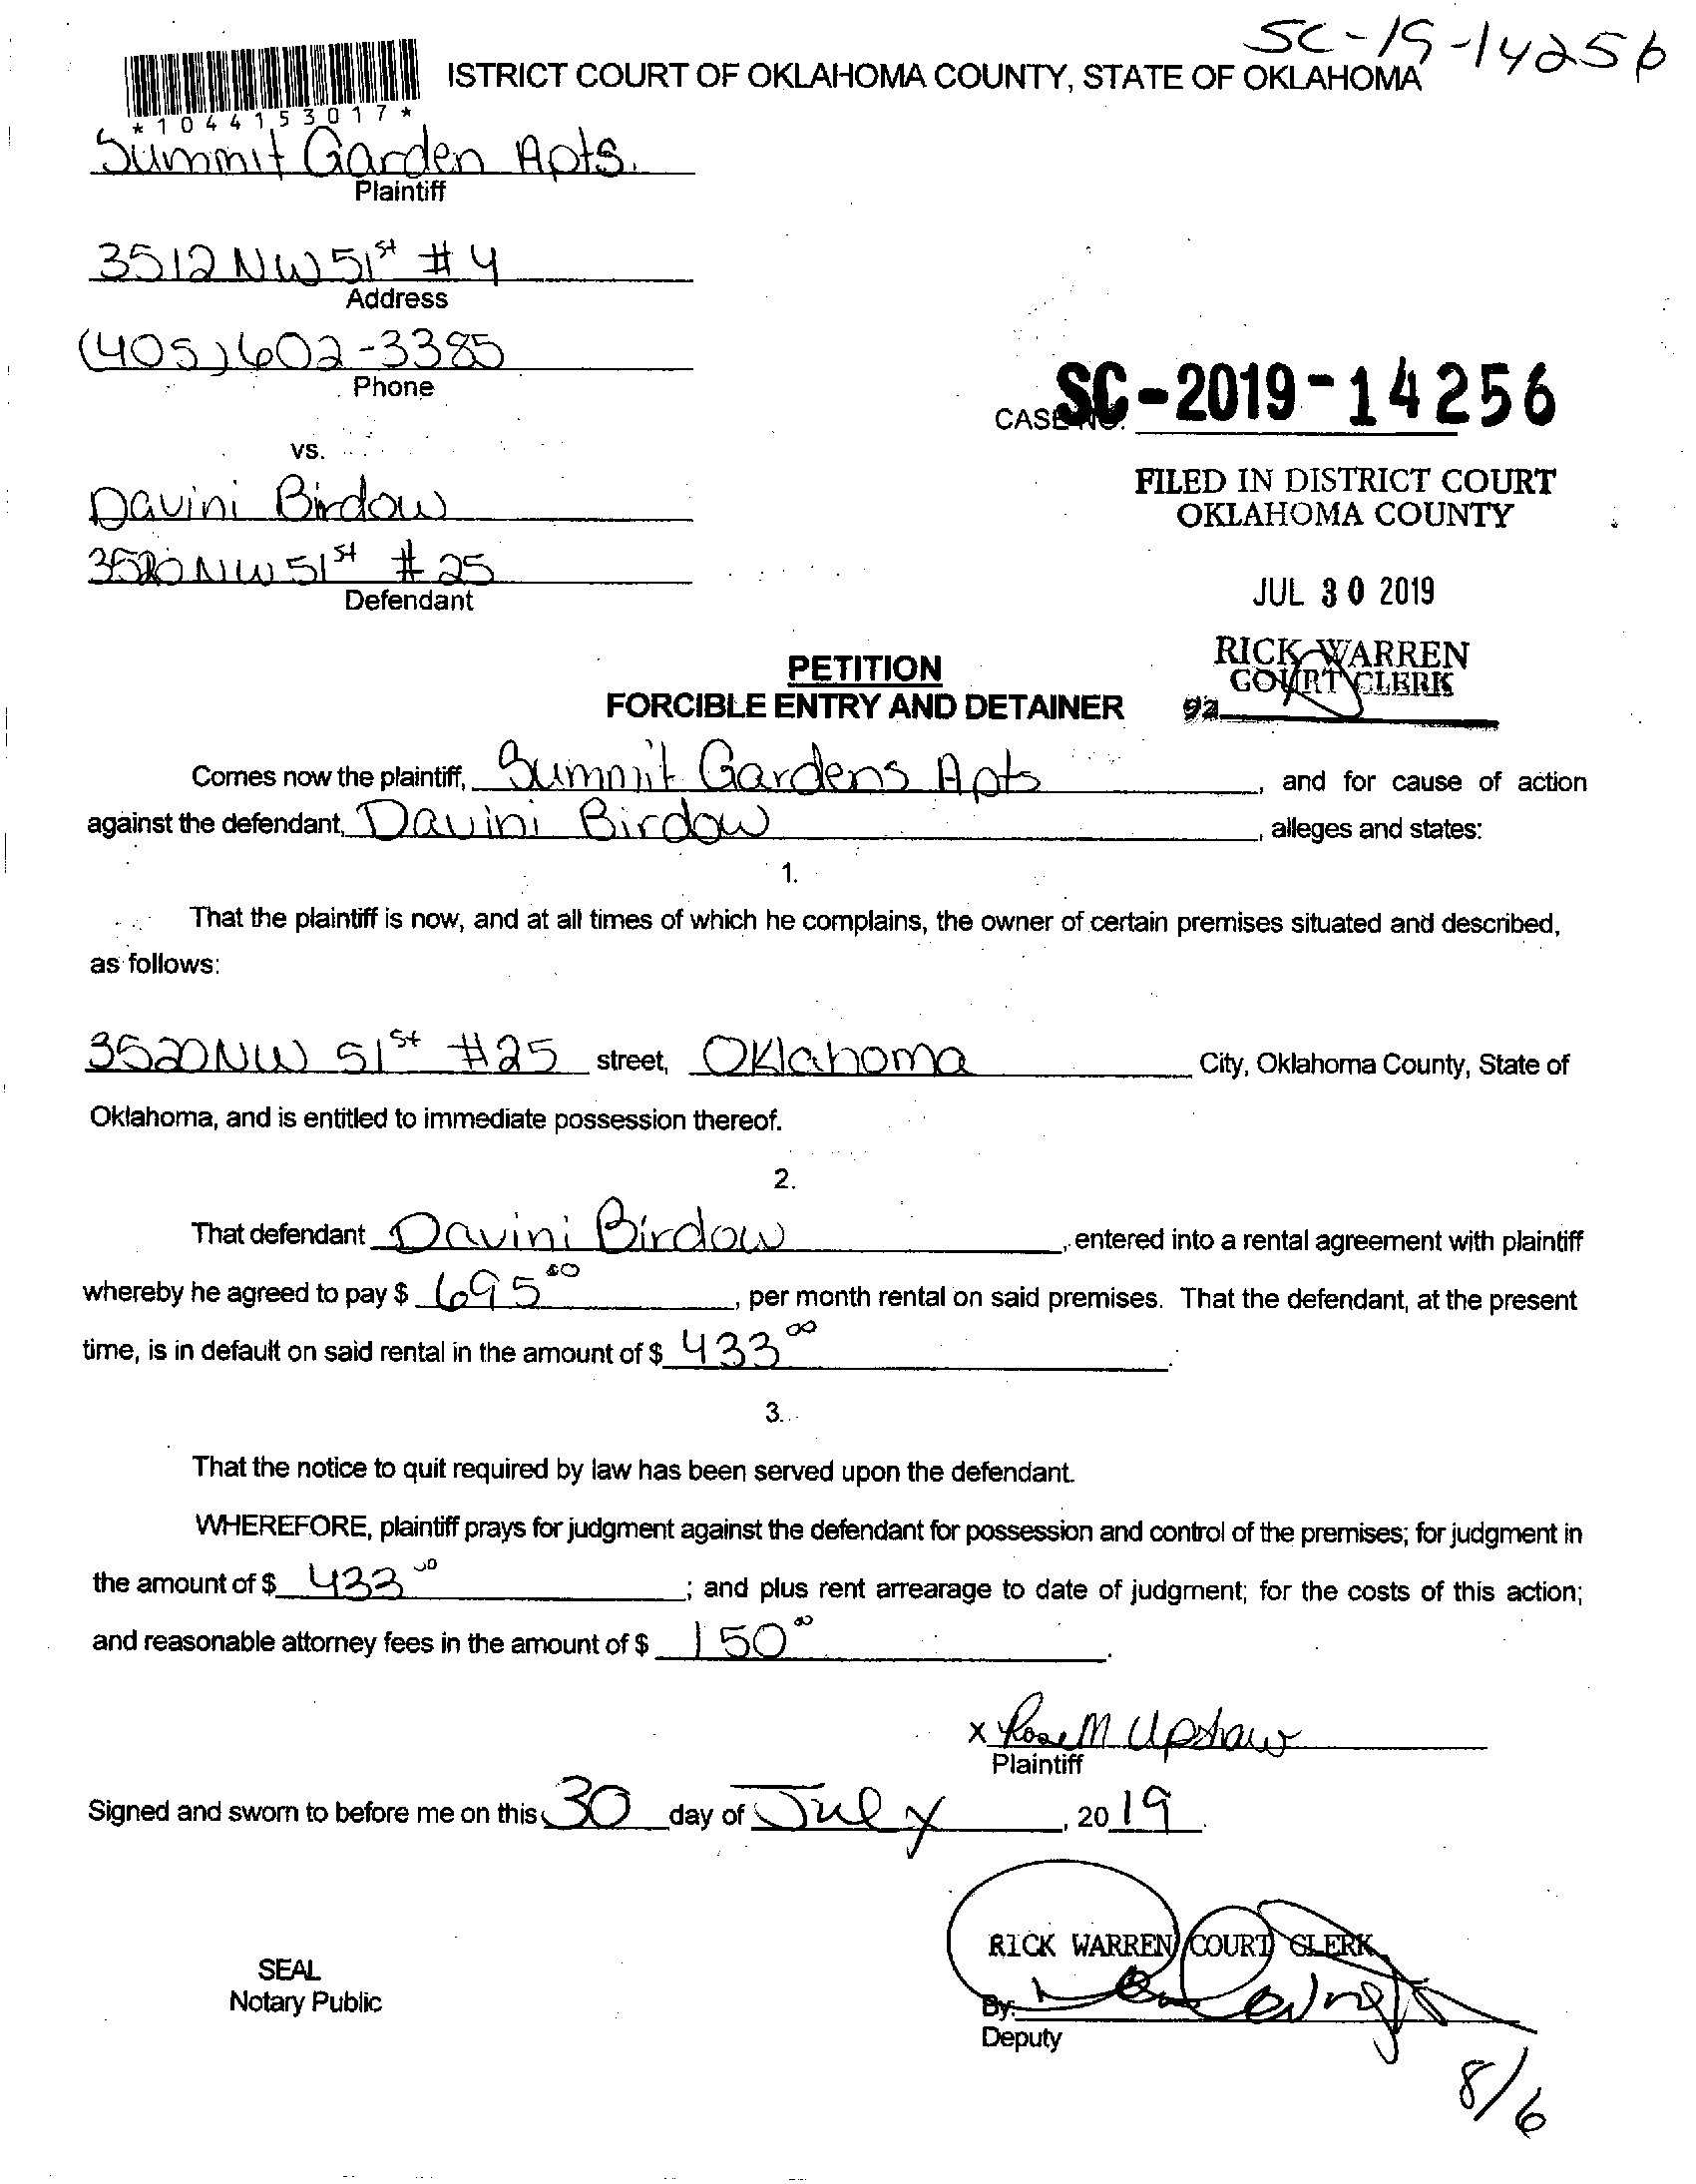 SC-19-14256
ISTRICT COURT OF OKLAHOMA COUNTY, STATE OF OKLAHOMA
*1044153017*
Summit Garden Apts.
Plaintiff
3512 NW 51st # 4
Address
(405) 602-3385
Phone
CASE NO. SC-2019-14256
vs.
FILED IN DISTRICT COURT
OKLAHOMA COUNTY
Davini Birdow
3520 NW 51st # 25
Defendant
JUL 30 2019
RICK WARREN
COURT CLERK
92
PETITION
FORCIBLE ENTRY AND DETAINER
Comes now the plaintiff, Summit Gardens Apts, and for cause of action
against the defendant, Davini Birdow, alleges and states:
1.
That the plaintiff is now, and at all times of which he complains, the owner of certain premises situated and described,
as follows:
3520 NW 51st #25 street, Oklahoma City, Oklahoma County, State of
Oklahoma, and is entitled to immediate possession thereof.
2.
That defendant Davini Birdow, entered into a rental agreement with plaintiff
whereby he agreed to pay $ 695 00, per month rental on said premises. That the defendant, at the present
time, is in default on said rental in the amount of $ 433 00.
3.
That the notice to quit required by law has been served upon the defendant.
WHEREFORE, plaintiff prays for judgment against the defendant for possession and control of the premises; for judgment in
the amount of $ 433 00; and plus rent arrearage to date of judgment; for the costs of this action;
and reasonable attorney fees in the amount of $ 150 00.
x Rose M Upshaw
Plaintiff
Signed and sworn to before me on this 30 day of July, 2019.
RICK WARREN COURT CLERK
SEAL
Notary Public
By:
Deputy
8/6